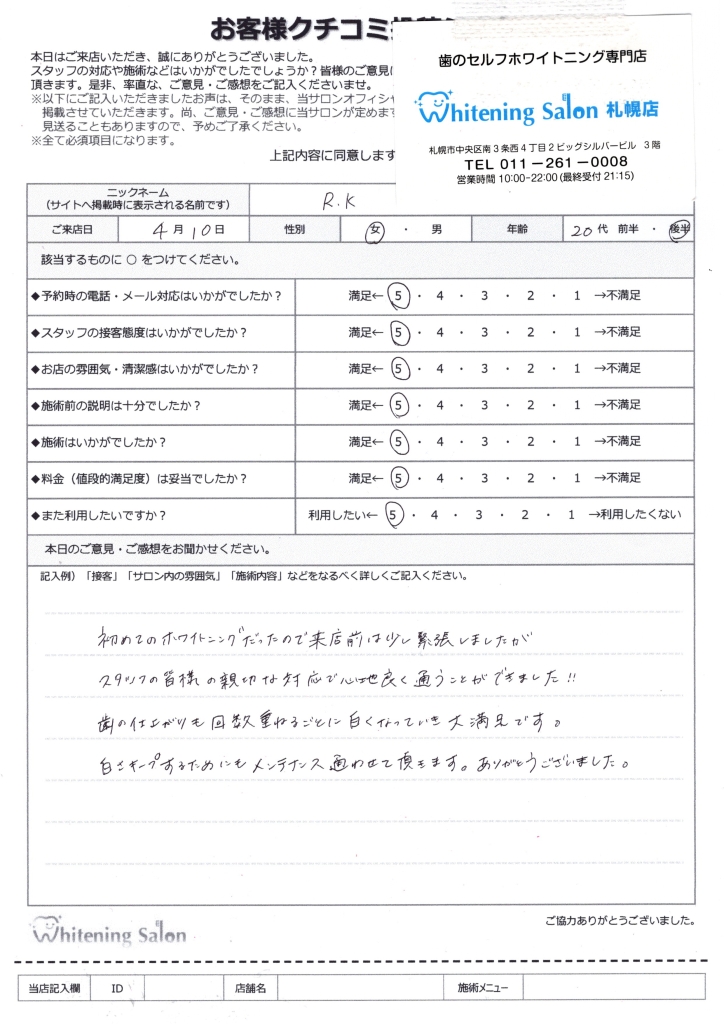 お客様クチコミ
本日はご来店いただき、誠にありがとうございました。
スタッフの対応や施術などはいかがでしたでしょうか?皆様のご意見
頂きます。是非、率直な、ご意見・ご感想をご記入くださいませ。
※以下にご記入いただきましたお声は、そのまま、当サロンオフィシャ
掲載させていただきます。尚、ご意見・ご感想に当サロンが定めます
見送ることもありますので、予めご了承ください。
※全て必須項目になります。
上記内容に同意します
歯のセルフホワイトニング専門店
Whitening Salon 札幌店
札幌市中央区南3条西4丁目2ビッグシルバービル 3階
TEL 011-261-0008
営業時間 10:00-22:00(最終受付 21:15)
ニックネーム
(サイトへ掲載時に表示される名前です)
R.K
ご来店日 4月10日 性別 女 ・ 男 年齢 20代 前半 ・ 後半
該当するものに ○ をつけてください。
◆予約時の電話・メール対応はいかがでしたか? 満足← 5 ・ 4 ・ 3 ・ 2 ・ 1 →不満足
◆スタッフの接客態度はいかがでしたか? 満足← 5 ・ 4 ・ 3 ・ 2 ・ 1 →不満足
◆お店の雰囲気・清潔感はいかがでしたか? 満足← 5 ・ 4 ・ 3 ・ 2 ・ 1 →不満足
◆施術前の説明は十分でしたか? 満足← 5 ・ 4 ・ 3 ・ 2 ・ 1 →不満足
◆施術はいかがでしたか? 満足← 5 ・ 4 ・ 3 ・ 2 ・ 1 →不満足
◆料金(値段的満足度)は妥当でしたか? 満足← 5 ・ 4 ・ 3 ・ 2 ・ 1 →不満足
◆また利用したいですか? 利用したい← 5 ・ 4 ・ 3 ・ 2 ・ 1 →利用したくない
本日のご意見・ご感想をお聞かせください。
記入例)「接客」「サロン内の雰囲気」「施術内容」などをなるべく詳しくご記入ください。
初めてのホワイトニングだったので来店前は少し緊張しましたが
スタッフの皆様の親切な対応で心地良く通うことができました!!
歯の仕上がりも回数重ねるごとに白くなっていき大満足です。
白さキープするためにもメンテナンス通わせて頂きます。ありがとうございました。
ご協力ありがとうございました。
Whitening Salon
当店記入欄 ID 店舗名 施術メニュー